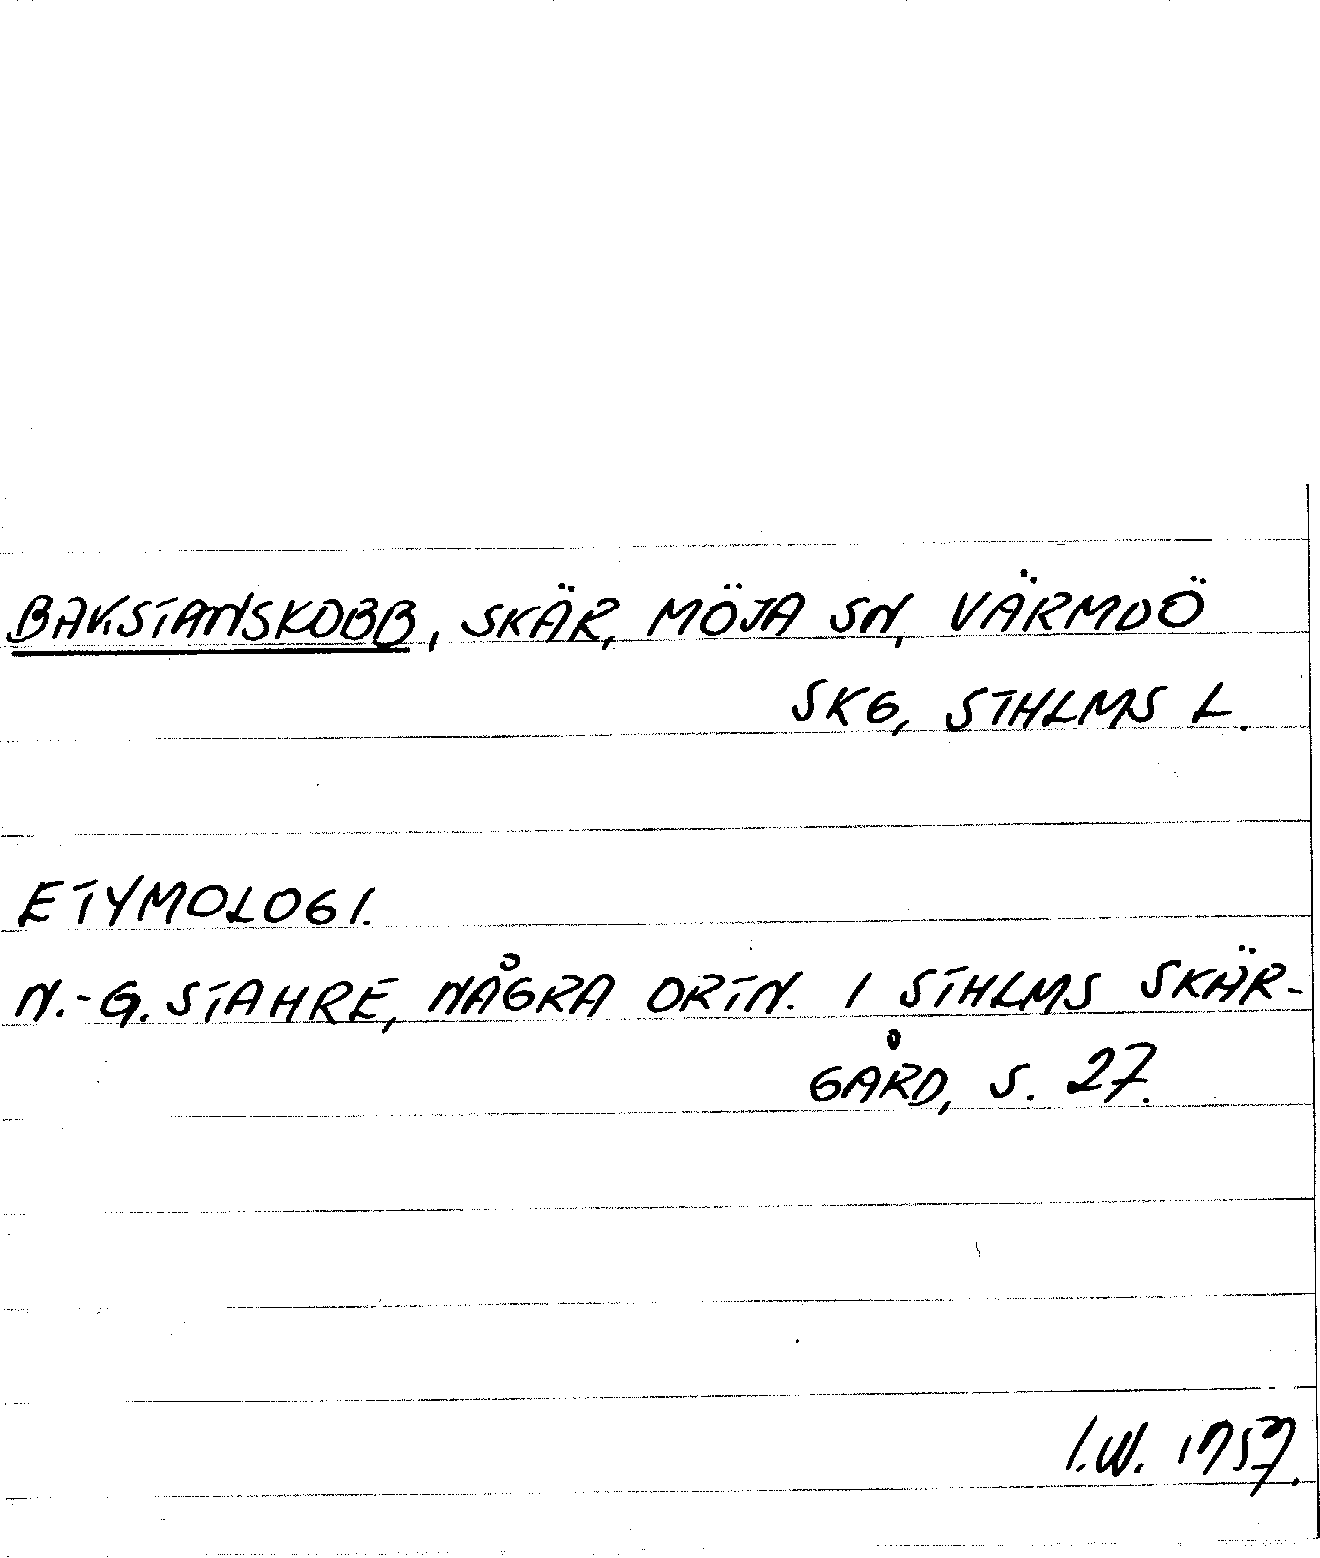 BAKSTANSKOBB, SKÄR, MÖJA SN, VÄRMDÖ
SKG, STHLMS L.
ETYMOLOGI.
N.-G. STAHRE, NÅGRA ORTN. I STHLMS SKÄR-
GÅRD, S. 27.
I.W. 1957.